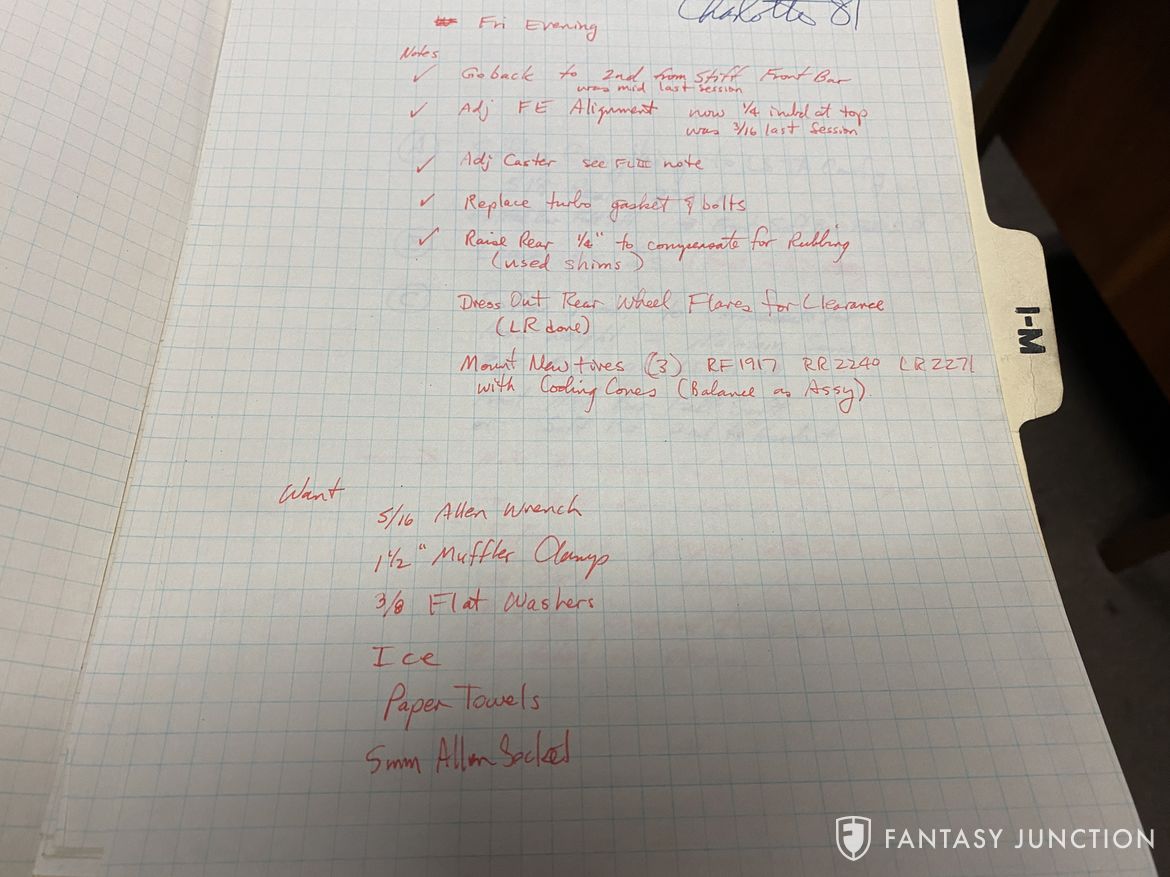 Charlotte 81
Fri Evening
Notes
✓ Go back to 2nd from Stiff Front Bar
was mid last session
✓ Adj FE Alignment now 1/4 inbd at top
was 3/16 last session
✓ Adj Caster see note
✓ Replace turbo gasket & bolts
✓ Raise Rear 1/4" to compensate for Rubbing
(used shims)
Dress Out Rear Wheel Flares for Clearance
(LR done)
Mount New tires (3) RF 1917 RR 2240 LR 2271
with Cooling Cones (Balance as Assy).
Want
5/16 Allen Wrench
1 1/2" Muffler Clamp
3/8 Flat Washers
Ice
Paper Towels
5mm Allen Socket
I-M
FANTASY JUNCTION